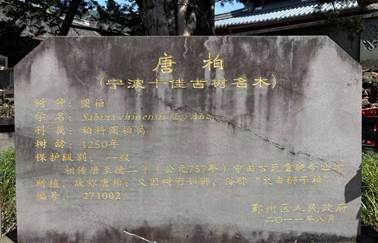 唐柏
(宁波十佳古树名木)
树种：圆柏
学名：Sabina chinensis
科属：柏科圆柏属
树龄：1250年
保护级别：一级
相传唐至德二年（公元757年）
所植，故称唐柏；
编号：271002
鄞州区人民政府
二〇一一年八月